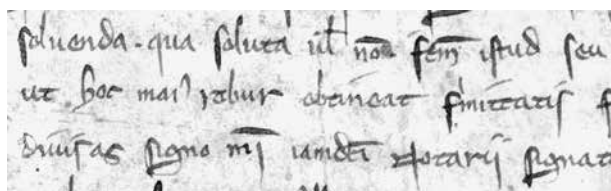 soluenda. qua soluta ul nō fcm̄ istud seu
ut hoc mai robur obtineat fmitatis f
diuisas signo mī iamdc̄i Notarij signat